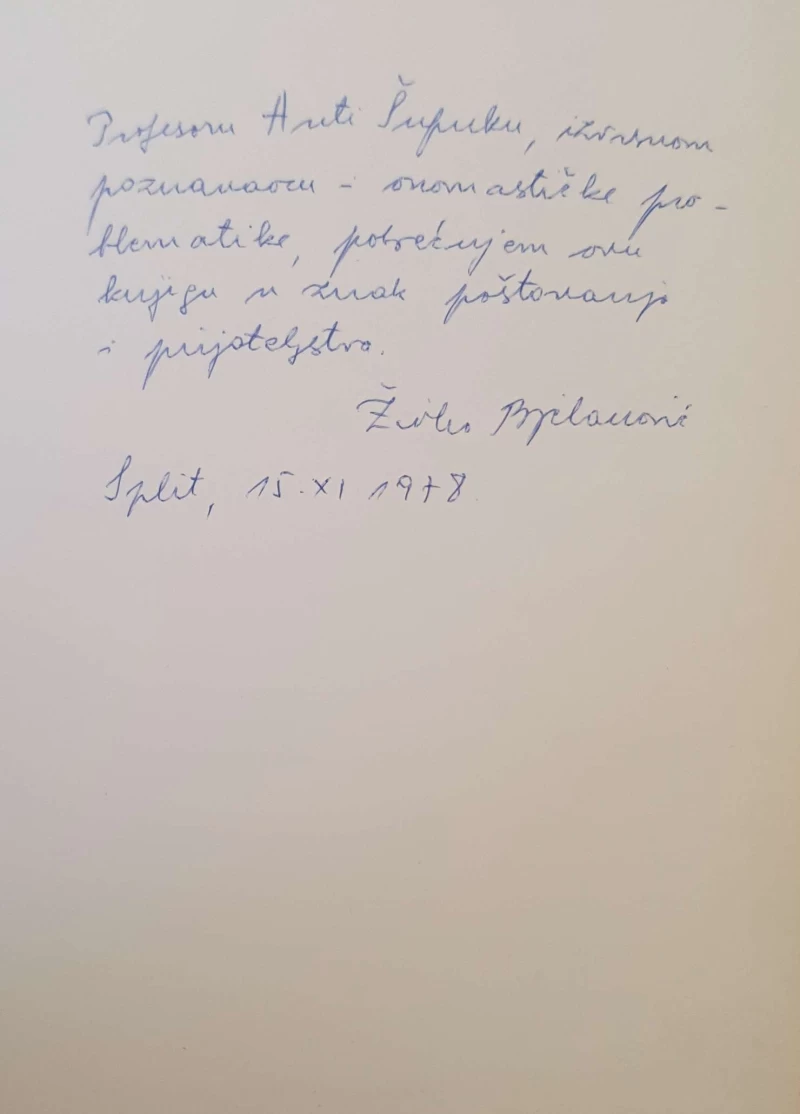 Profesoru Anti Šupuku, izvrsnom
poznavaocu - onomastičke pro-
blematike, posvećujem ovu
knjigu u znak poštovanja
i prijateljstva.
Živko Bjelanović
Split, 15. XI 1978